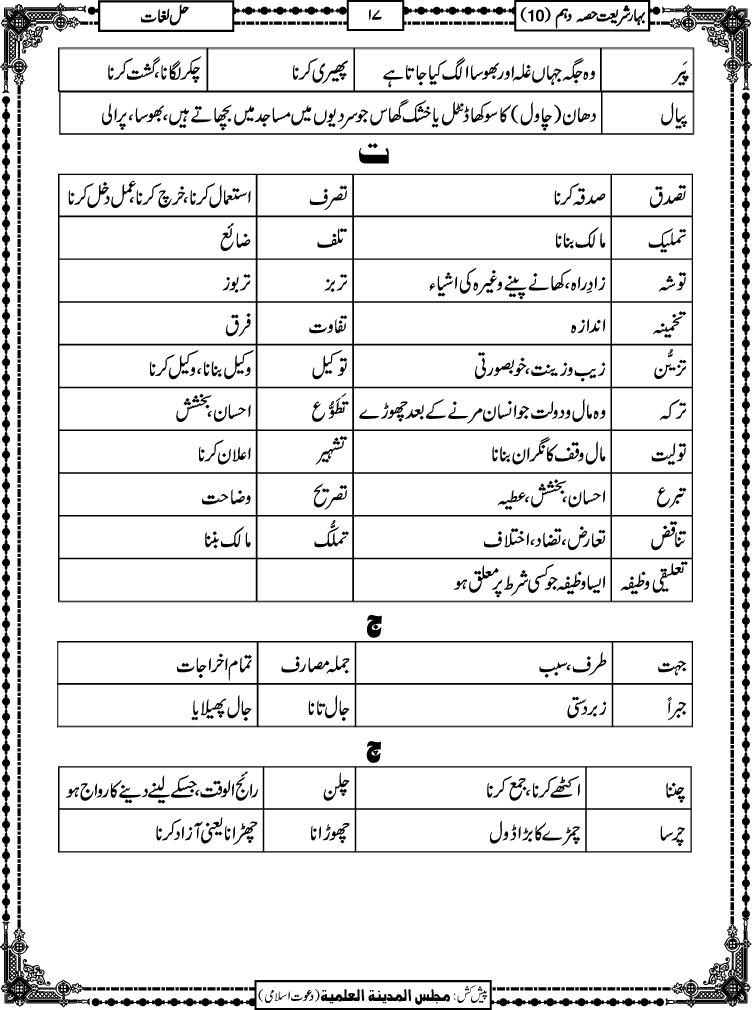 بہار شریعت حصہ دہم (10) ۱۷ حل لغات
پَیَر وہ جگہ جہاں غلہ اور بھوسا الگ کیا جاتا ہے پھیری کرنا چکر لگانا، گشت کرنا
پیال دھان (چاول) کا سوکھا ڈنٹھل یا خشک گھاس جو سردیوں میں مساجد میں بچھاتے ہیں، بھوسا، پرالی
ت
تصدق صدقہ کرنا تصرف استعمال کرنا، خرچ کرنا، عمل دخل کرنا
تملیک مالک بنانا تلف ضائع
توشہ زادِ راہ، کھانے پینے وغیرہ کی اشیاء تربز تربوز
تخمینہ اندازہ تفاوت فرق
تزیُّن زیب و زینت، خوبصورتی توکیل وکیل بنانا، وکیل کرنا
ترکہ وہ مال و دولت جو انسان مرنے کے بعد چھوڑے تَطَوُّع احسان، بخشش
تولیت مال وقف کا نگران بنانا تشہیر اعلان کرنا
تبرع احسان، بخشش، عطیہ تصریح وضاحت
تناقض تعارض، تضاد، اختلاف تملُّک مالک بننا
تعلیقی وظیفہ ایسا وظیفہ جو کسی شرط پر معلق ہو
ج
جہت طرف، سبب جملہ مصارف تمام اخراجات
جبراً زبردستی جال تانا جال پھیلایا
چ
چننا اکٹھے کرنا، جمع کرنا چلن رائج الوقت، جسکے لینے دینے کا رواج ہو
چرسا چمڑے کا بڑا ڈول چھوڑانا چھڑانا یعنی آزاد کرنا
پیش کش: مجلس المدینۃ العلمیۃ (دعوت اسلامی)